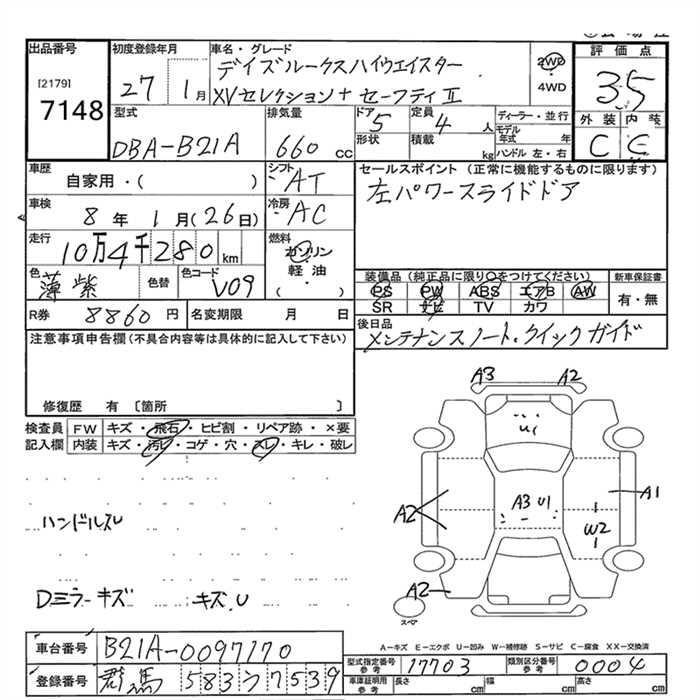 出品番号
[2179]
7148
初度登録年月
27 1月
車名・グレード
デイズルークスハイウエイスター
XVセレクション+セーフティⅡ
2WD
・
4WD
評価点
3.5
外装 内装
C E
型式
DBA-B21A
排気量
660 cc
ドア 5
形状
定員 4 人
積載 kg
ディーラー・並行
モデル年式 年
ハンドル 左・右
車歴
自家用・( )
シフト AT
車検
8年 1月(26日)
冷房 AC
走行
10万4千280km
燃料
ガソリン
軽・油
( )
色
薄紫
色替
色コード V09
R券 8860円
名変期限 月 日
セールスポイント (正常に機能するものに限ります)
左パワースライドドア
装備品(純正品に限り○をつけてください)
PS PW ABS エアB AW
SR ナビ TV カワ
新車保証書
有・無
後日品
メンテナンスノート.クイックガイド
注意事項申告欄(不具合内容等は具体的に記入して下さい)
修復歴 有 〔箇所 〕
検査員記入欄
FW キズ・飛石・ヒビ割・リペア跡・×要
内装 キズ・汚レ・コゲ・穴・スレ・キレ・破レ
ハンドルスU
Dミラーキズ キズ.U
A3 A2
U1
A3 U1
A2
A1
W2
A2
スペア
A-キズ E-エクボ U-凹み W-補修跡 S-サビ C-腐食 XX-交換済
車台番号 B21A-0097170
登録番号 群馬 583 ワ 7539
型式指定番号 参考 17703
類別区分番号 参考 0004
車庫証明用 参考 長さ cm 幅 cm 高さ cm